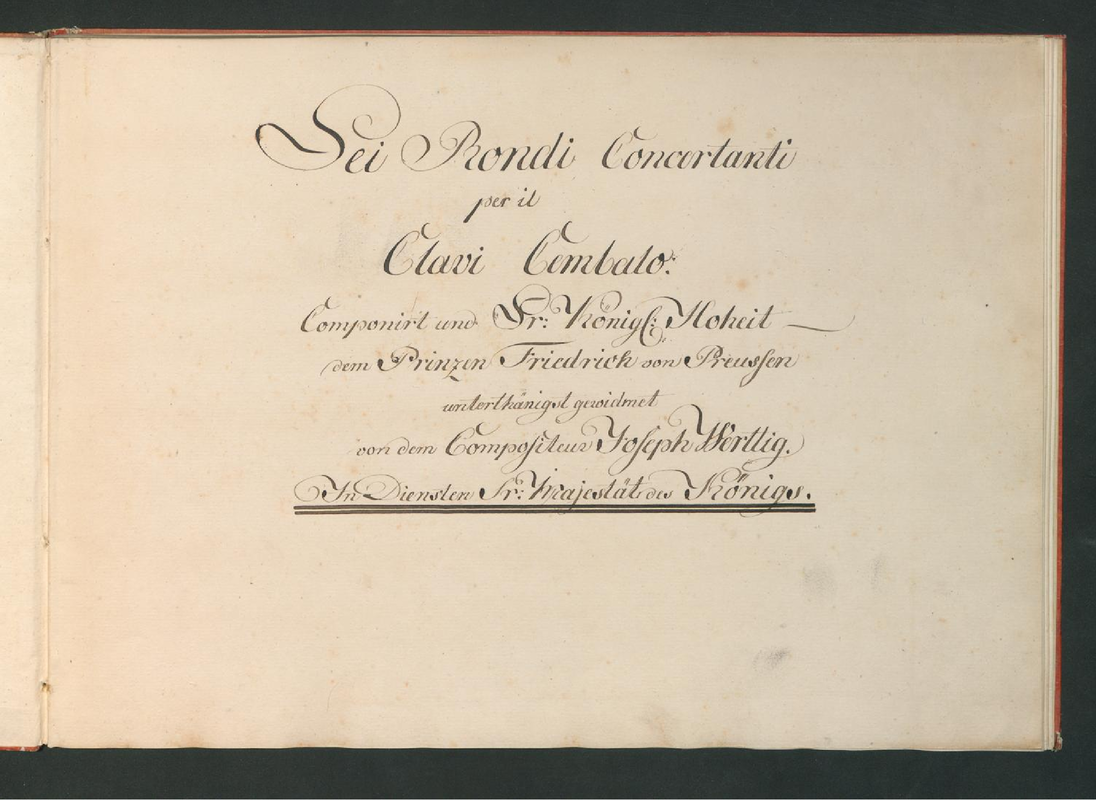 Sei Rondi Concertanti
per il
Clavi Cembalo:
Componirt und Sr: Königl: Hoheit
dem Prinzen Friedrich von Preussen
unterthänigst gewidmet
von dem Compositeur Joseph Werttig.
In Diensten Sr: Majestät des Königs.